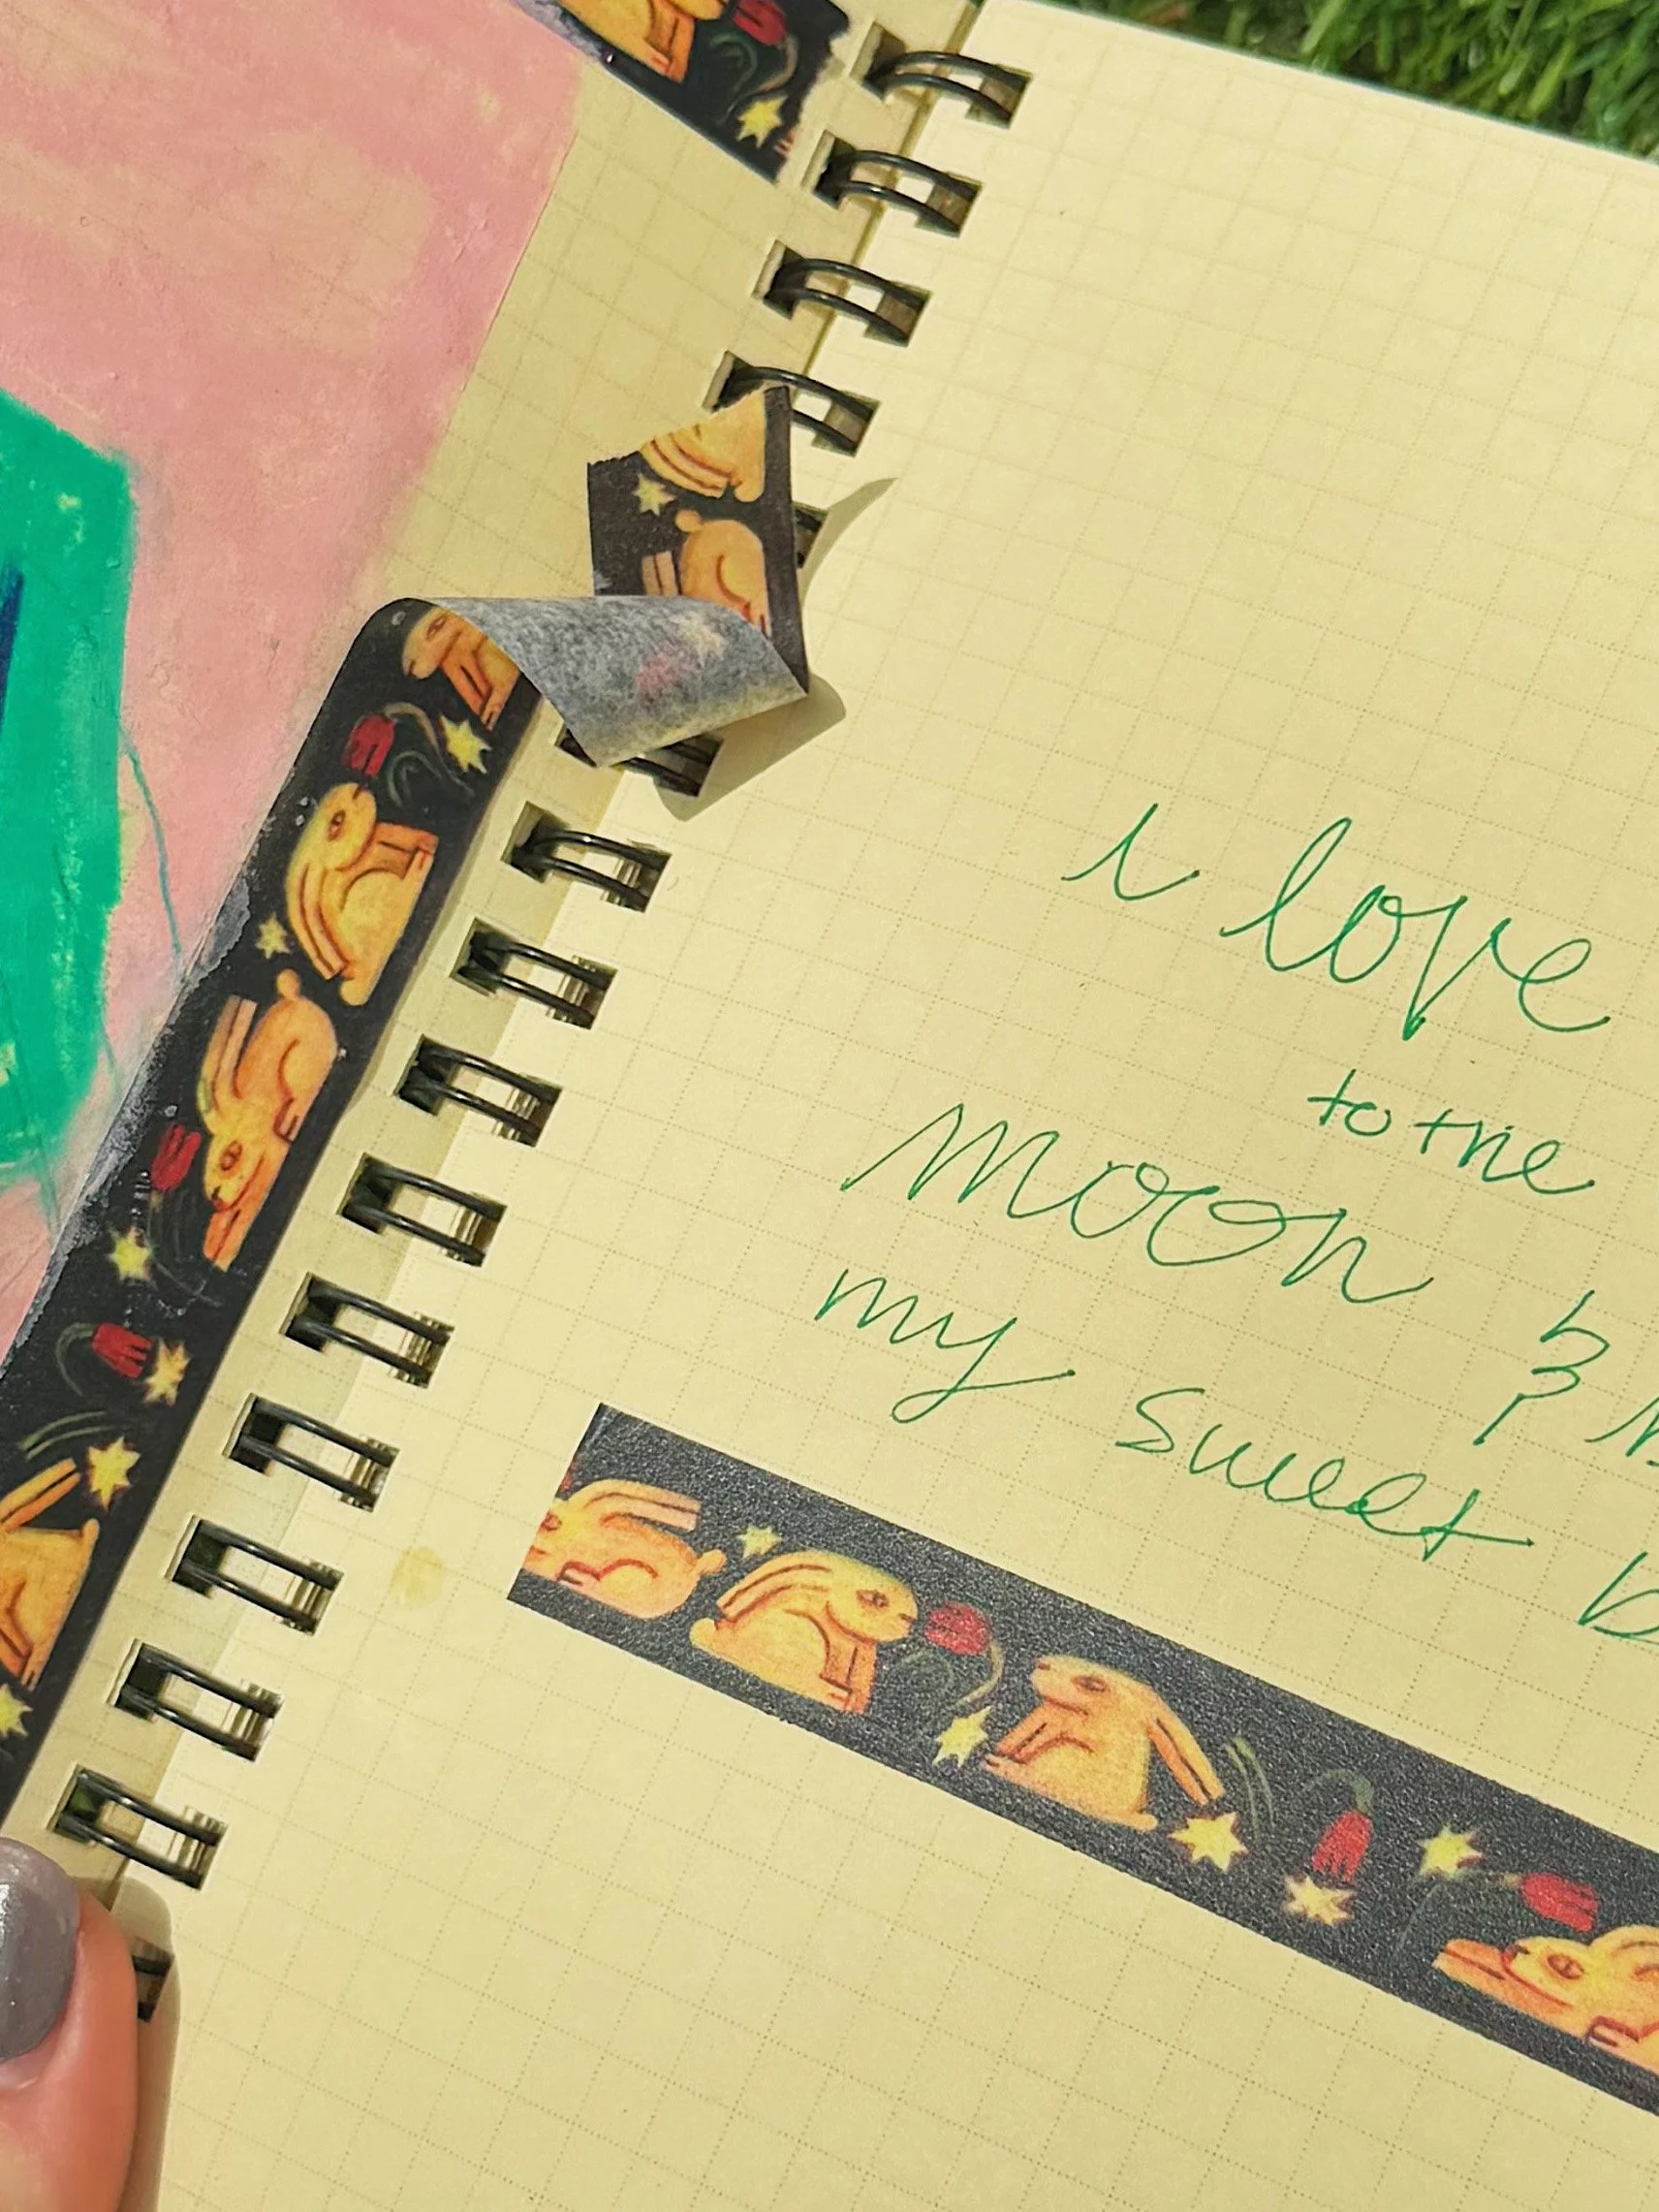 i love
to the
moon &
my sweet